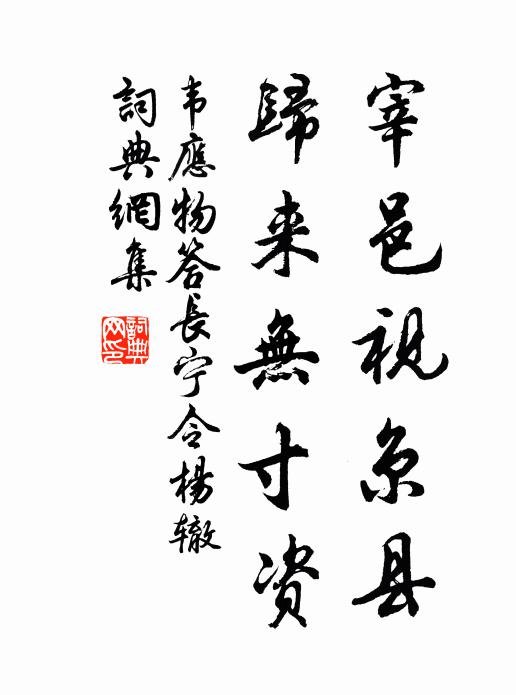 宰邑視京县
歸来無寸资
韦應物答長宁令楊辙
詞典網集
詞典網印